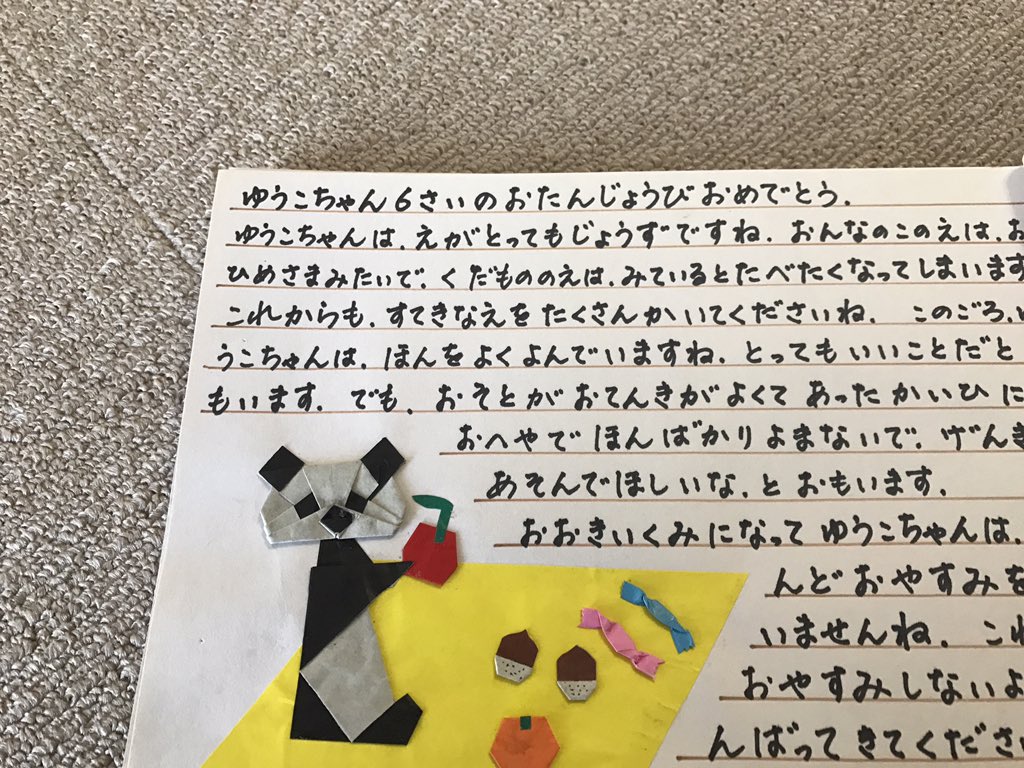 ゆうこちゃん6さいのおたんじょうびおめでとう.
ゆうこちゃんは.えがとってもじょうずですね.おんなのこのえは.お
ひめさまみたいで.くだもののえは.みているとたべたくなってしまいます
これからも.すてきなえをたくさんかいてくださいね. このごろ.
うこちゃんは.ほんをよくよんでいますね.とってもいいことだと
もいます.でも.おそとがおてんきがよくてあったかいひに
おへやでほんばかりよまないで.げんき
あそんでほしいな.とおもいます.
おおきいくみになってゆうこちゃんは.
んどおやすみを
いませんね.これ
おやすみしないよ
んばってきてくださ